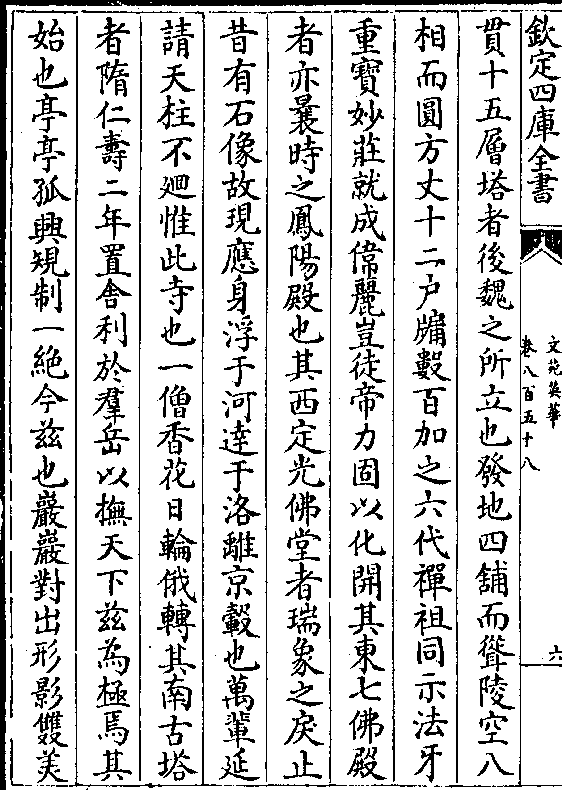 欽定四庫全書
文苑英華
卷八百五十八
六
貫十五層塔者後魏之所立也發地四鋪而聳陵空八
相而圓方丈十二户牖數百加之六代禪祖同示法牙
重寶妙莊就成偉麗豈徒帝力固以化開其東七佛殿
者亦曩時之鳳陽殿也其西定光佛堂者瑞象之戾止
昔有石像故現應身浮于河達于洛離京轂也萬輩延
請天柱不廻惟此寺也一僧香花日輪俄轉其南古塔
者隋仁壽二年置舍利於羣岳以撫天下兹為極焉其
始也亭亭孤興規制一絶今兹也巖巖對出形影雙美